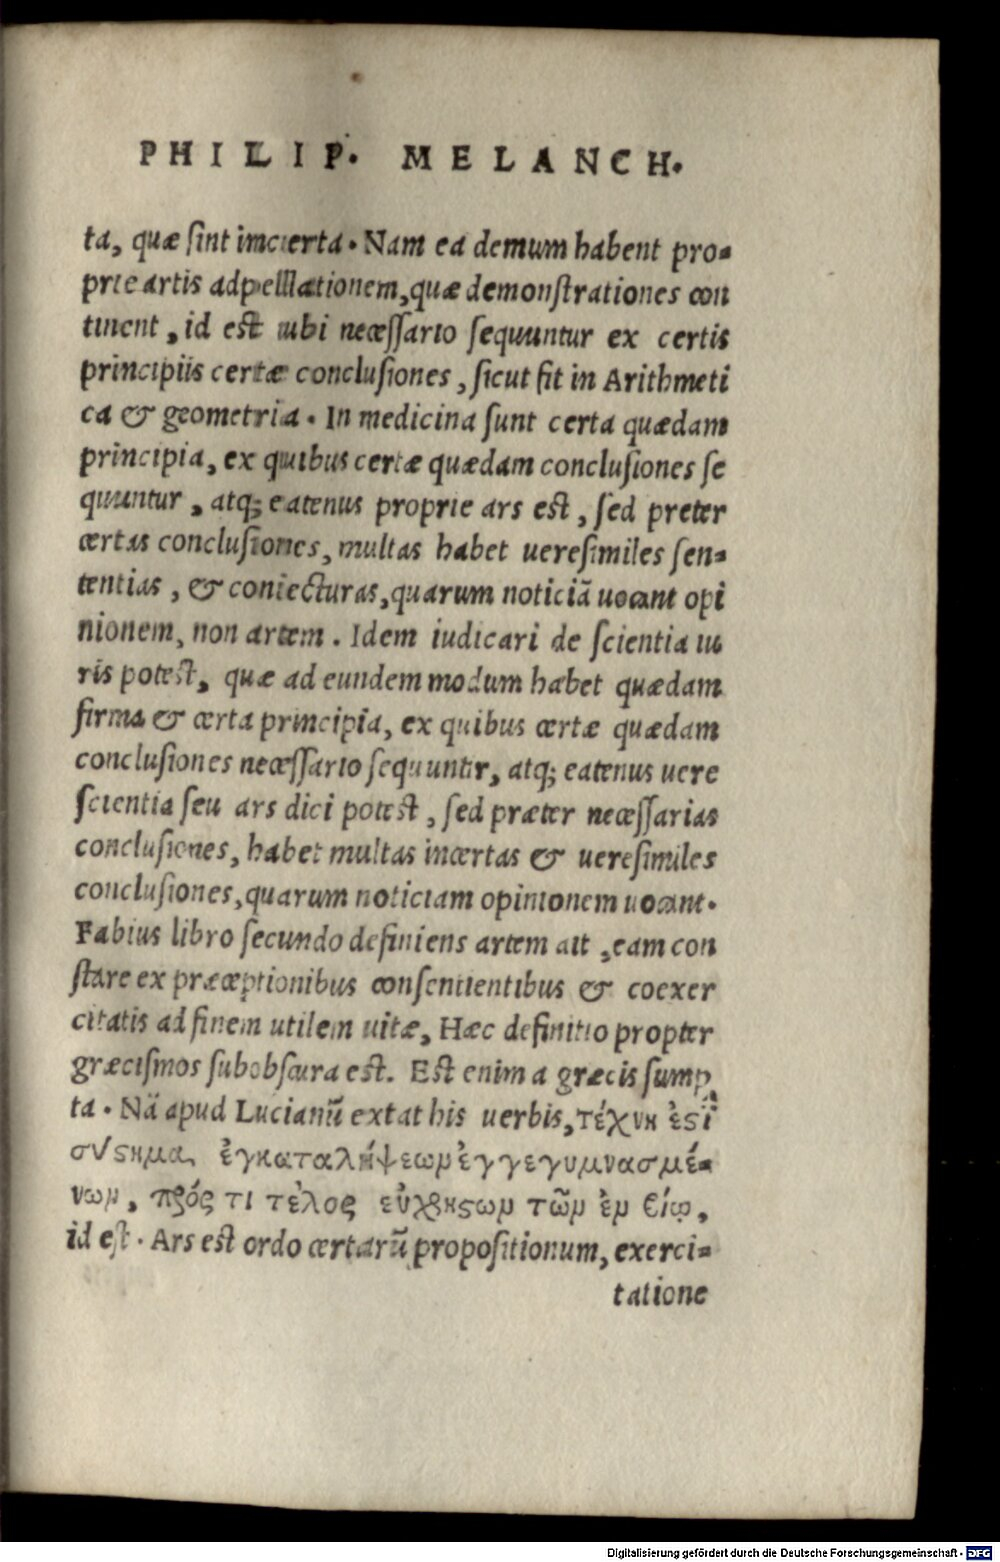 PHILIP. MELANCH.
ta, quæ sint incerta. Nam ea demum habent pro-
prie artis adpellationem, quæ demonstrationes con
tinent, id est ubi necessario sequuntur ex certis
principiis certæ conclusiones, sicut fit in Arithmeti
ca & geometria. In medicina sunt certa quædam
principia, ex quibus certæ quædam conclusiones se
quuntur, atq; eatenus proprie ars est, sed preter
certas conclusiones, multas habet ueresimiles sen-
tentias, & coniecturas, quarum noticiã uocant opi
nionem, non artem. Idem iudicari de scientia iu
ris potest, quæ ad eundem modum habet quædam
firma & certa principia, ex quibus certæ quædam
conclusiones necessario sequuntur, atq; eatenus uere
scientia seu ars dici potest, sed præter necessarias
conclusiones, habet multas incertas & ueresimiles
conclusiones, quarum noticiam opinionem uocant.
Fabius libro secundo definiens artem ait, eam con
stare ex præceptionibus consentientibus & coexer
citatis ad finem utilem uitæ, Hæc definitio propter
græcismos subobscura est. Est enim a græcis sump
ta. Nã apud Lucianũ extat his uerbis, τέχνη ἐϛὶ
σύϛημα ἐγκαταλήψεων ἐγγεγυμνασμέ-
νων, πρός τι τέλος εὐχρηϛων τῶν ἐν βίῳ,
id est. Ars est ordo certarũ propositionum, exerci-
tatione
Digitalisierung gefördert durch die Deutsche Forschungsgemeinschaft - DFG